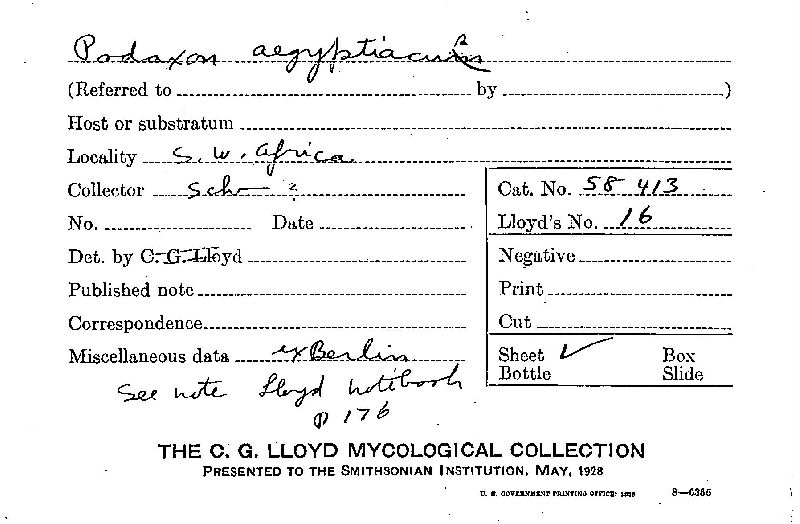 Podaxon aegyptiacus
(Referred to by )
Host or substratum
Locality S. W. Africa
Collector Sch— ?
Cat. No. 58 413
No. Date
Lloyd's No. 16
Det. by C. G. Lloyd
Negative
Published note
Print
Correspondence
Cut
Miscellaneous data ex Berlin
Sheet ✓ Box
Bottle Slide
See note Lloyd notebook
p 176
THE C. G. LLOYD MYCOLOGICAL COLLECTION
PRESENTED TO THE SMITHSONIAN INSTITUTION, MAY, 1928
U. S. GOVERNMENT PRINTING OFFICE: 1928 8—6386